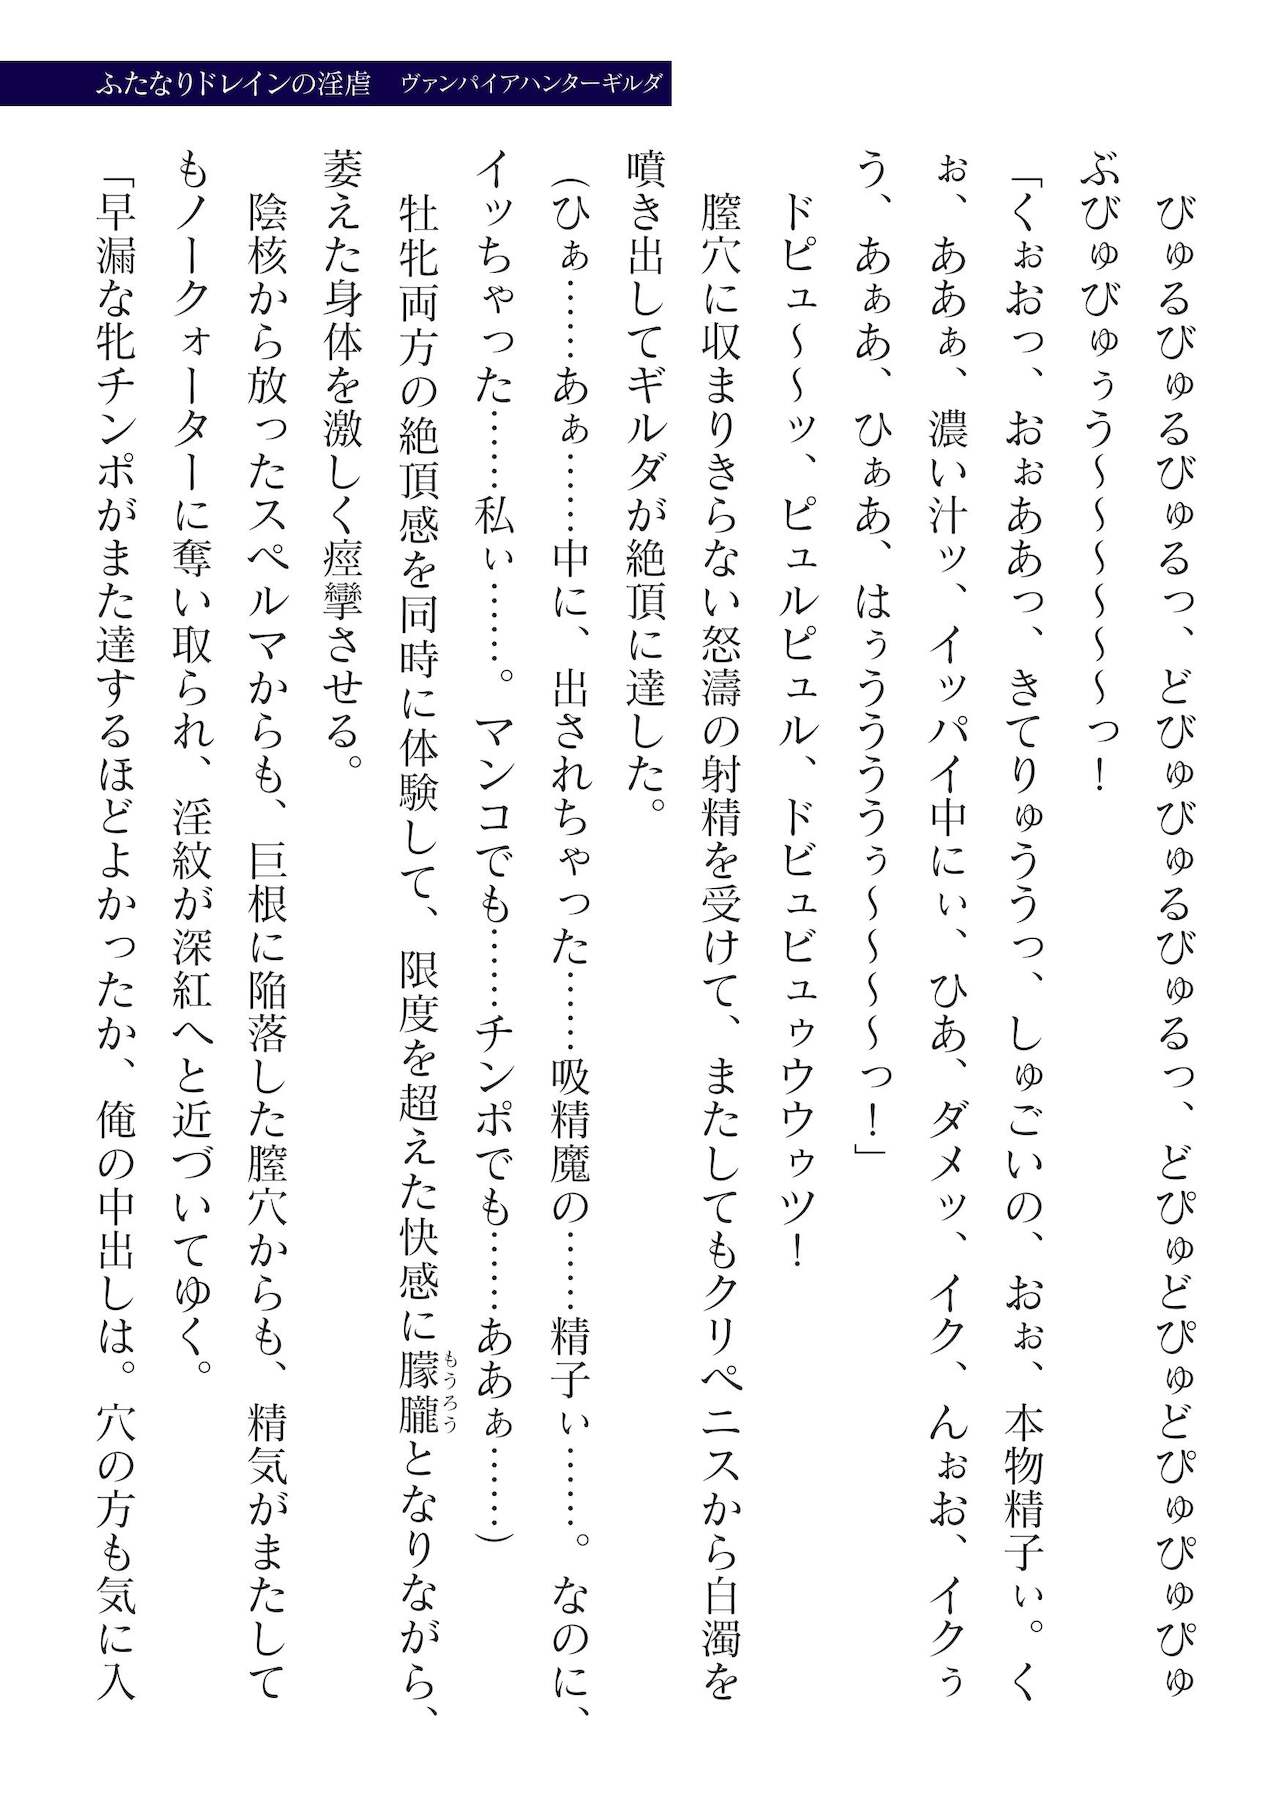 ふたなりドレインの淫虐　ヴァンパイアハンターギルダ
びゅるびゅるびゅるっ、どびゅびゅるびゅるっ、どぴゅどぴゅどぴゅぴゅぴゅ
ぶびゅびゅぅう～～～～～～っ！
「くぉおっ、おぉああっ、きてりゅううっ、しゅごいの、おぉ、本物精子ぃ。く
ぉ、ああぁ、濃い汁ッ、イッパイ中にぃ、ひあ、ダメッ、イク、んぉお、イクぅ
う、あぁあ、ひぁあ、はぅうううぅ～～～～っ！」
ドピュ～～ッ、ピュルピュル、ドビュビュゥウウゥツ！
膣穴に収まりきらない怒濤の射精を受けて、またしてもクリペニスから白濁を
噴き出してギルダが絶頂に達した。
（ひぁ……あぁ……中に、出されちゃった……吸精魔の……精子ぃ……。なのに、
イッちゃった……私ぃ……。マンコでも……チンポでも……ああぁ……）
牡牝両方の絶頂感を同時に体験して、限度を超えた快感に朦朧となりながら、
もうろう
萎えた身体を激しく痙攣させる。
陰核から放ったスペルマからも、巨根に陥落した膣穴からも、精気がまたして
もノークォーターに奪い取られ、淫紋が深紅へと近づいてゆく。
「早漏な牝チンポがまた達するほどよかったか、俺の中出しは。穴の方も気に入